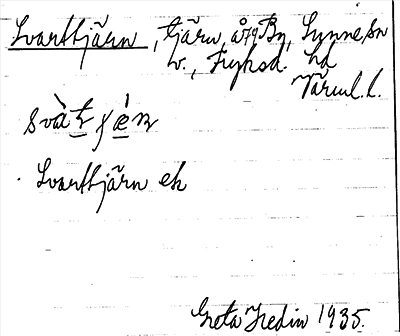 Svarttjärn, tjärn, å+9 By, Sunne sn
v., Fryksd. hd
Värml. l.
Svarttjärn ek
Greta Hedin 1935.